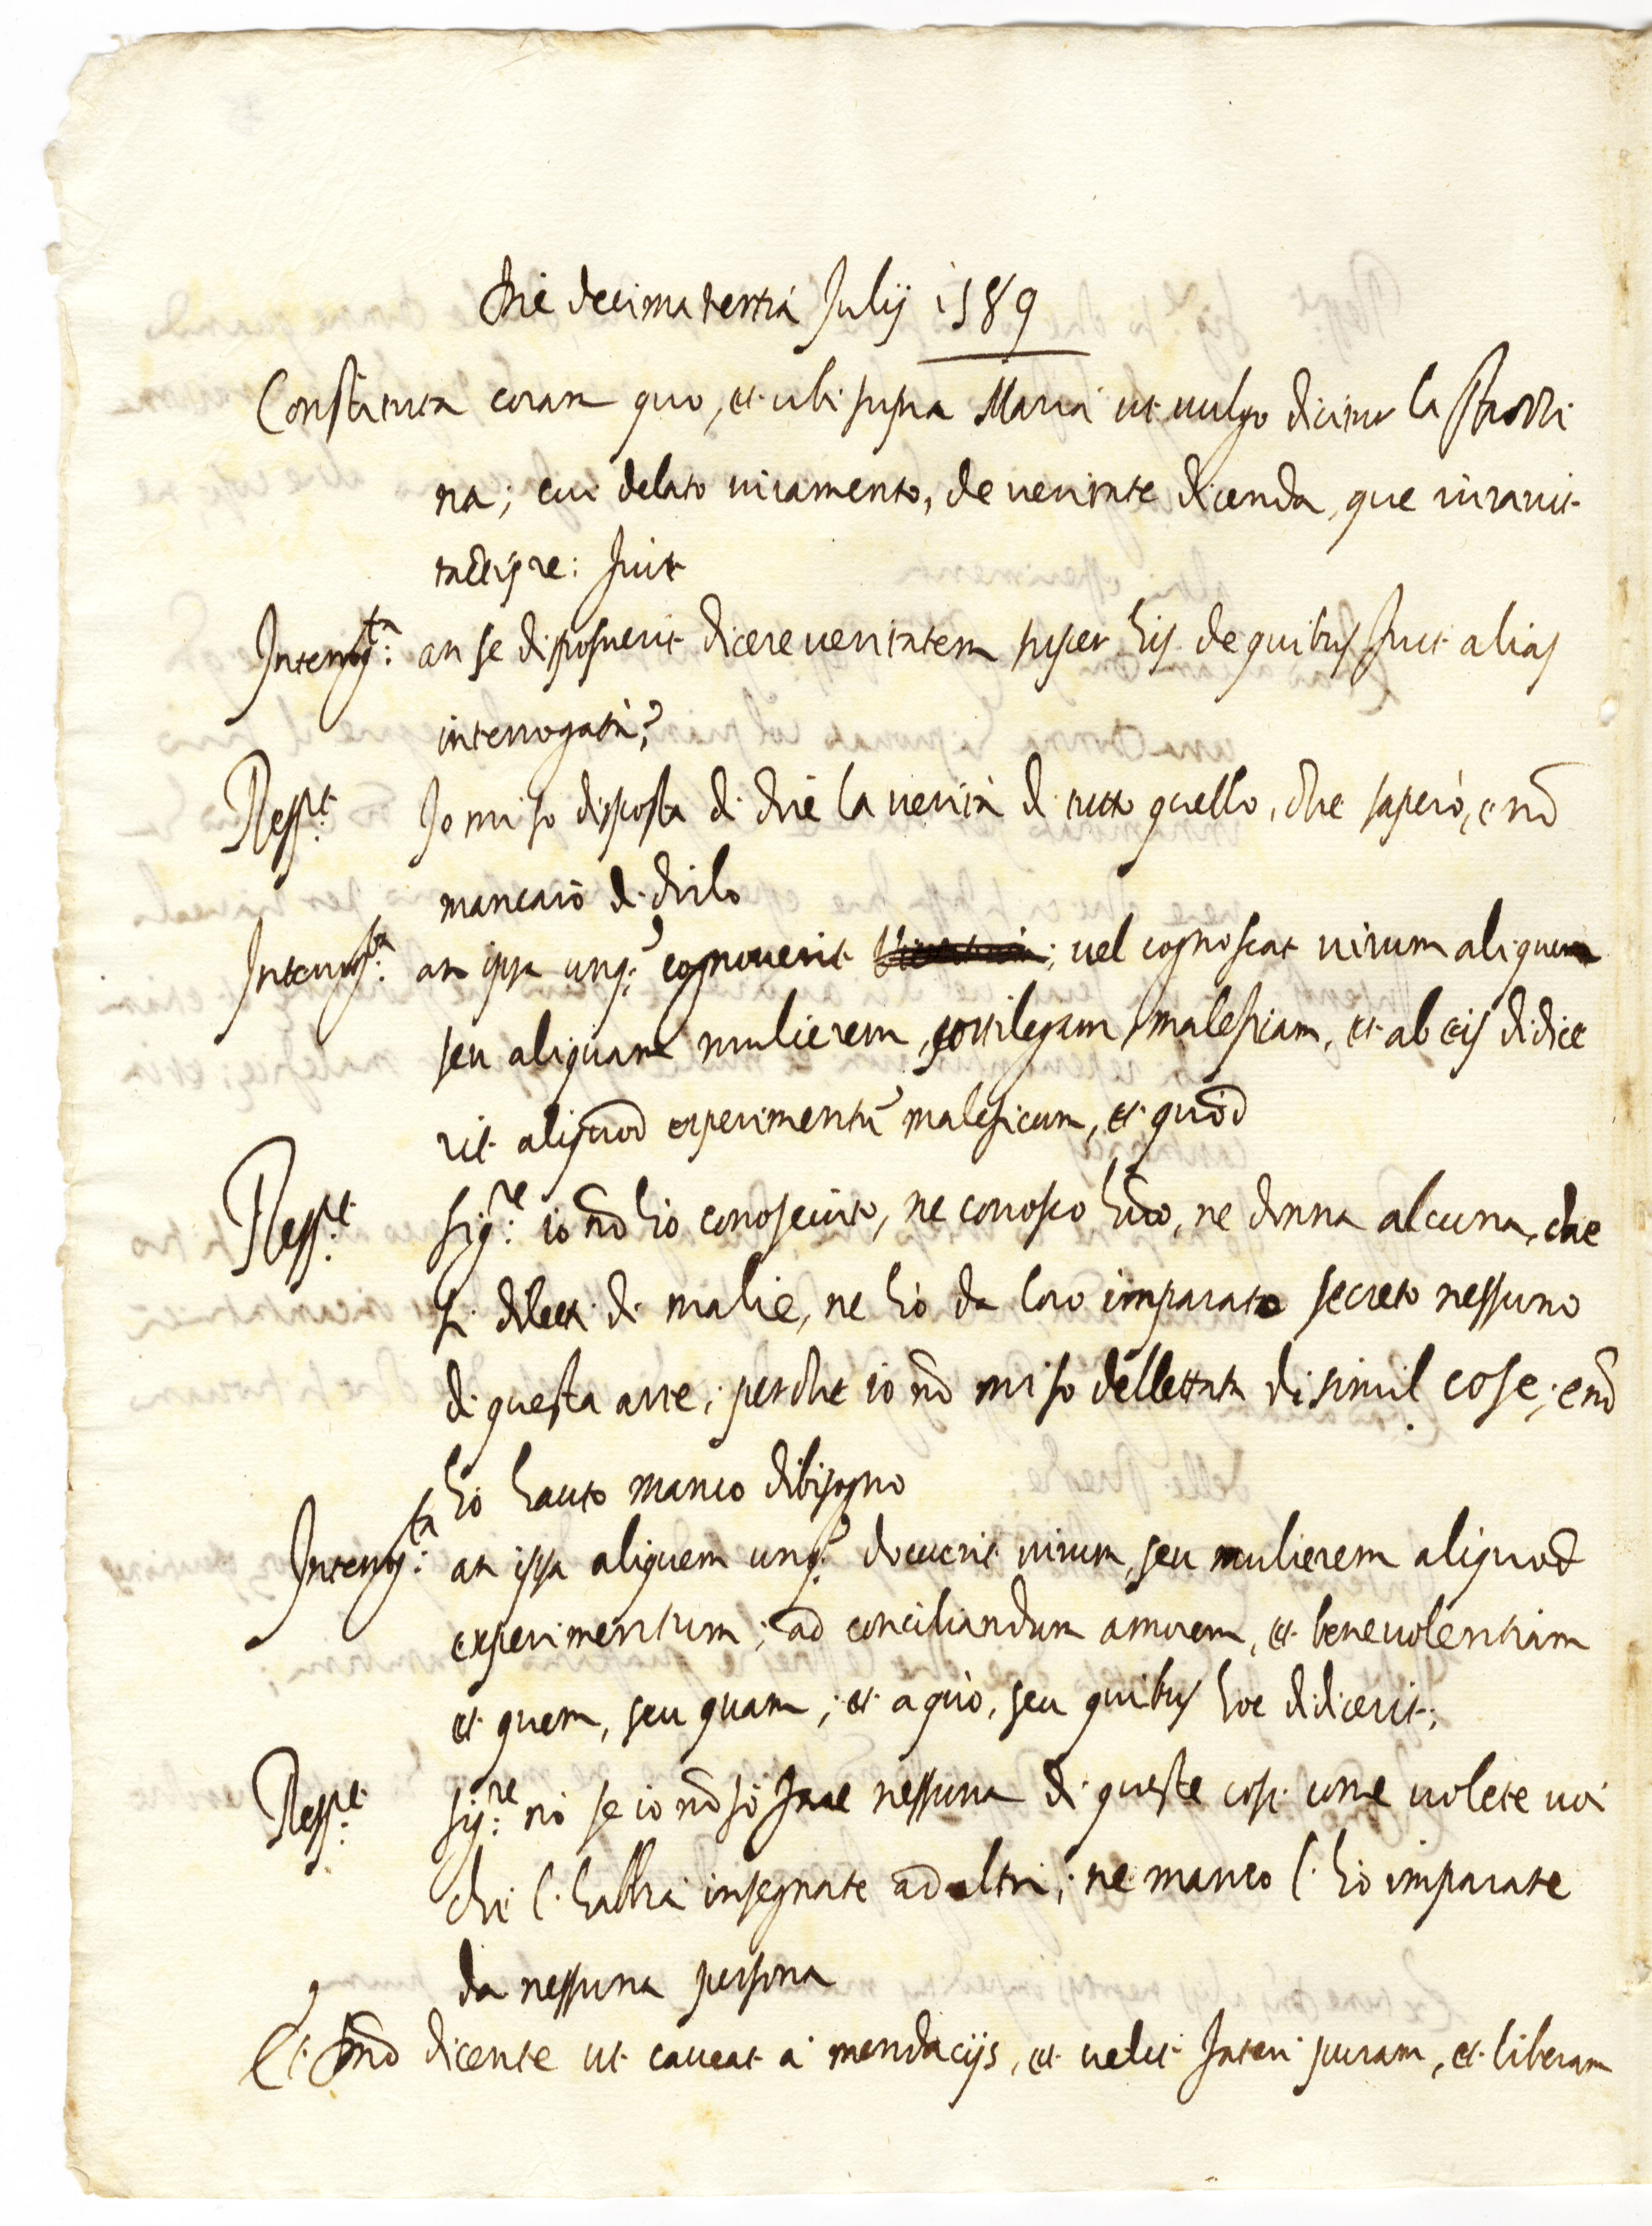 Die decima tertia Julij 1589
Constituta coram quo, et ubi supra Maria ut vulgo dicitur la
na; cui delato iuramento, de veritate dicenda, que iuravit
fuit
Interrog:ta an se disposuerit dicere veritatem super his de quibus fuit alias
interrogata?
Resp:t Io mi so disposta di dire la verità di tutto quello, che saperò, e nō
mancarò di dirlo
Interrog:ta an ipsa unq; cognoverit ; vel cognoscat virum aliquem
seu aliquam mulierem, sortilegam, maleficam, et ab eis didice
rit aliquod experimentū maleficum, et quod
Resp:t Sig:re io nō hò conosciuto, ne conosco hōo, ne donna alcuna, che
si diletti di malie, ne hò da loro imparato secreto nessuno
di questa arte; perche io nō mi so dellettata di simil cose; e nō
hò hauto manco di bisogno
Interrog:ta an ipsa aliquem unq; docuerit virum, seu mulierem aliquod
experimentum; ad conciliandum amorem, et benevolentiam
et quem, seu quam; et a quò, seu quibus hoc didicerit;
Resp:t Sig:re nò se io nō sò fare nessuna di queste cose come volete voi
che l'habbia insegnate ad altri; ne manco l'hò imparate
da nessuna persona
Et Dnō dicente ut caveat à mendacijs, et velit fateri puram, et liberam